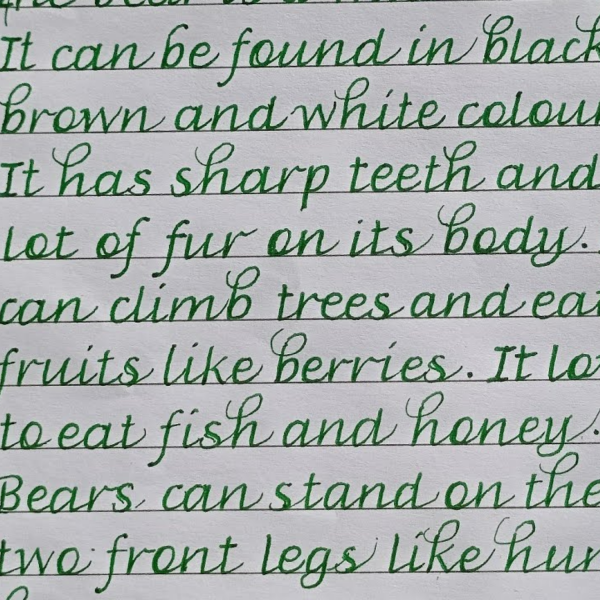 It can be found in black
brown and white colou
It has sharp teeth and
lot of fur on its body.
can climb trees and eat
fruits like berries. It lo
to eat fish and honey.
Bears can stand on the
two front legs like hu